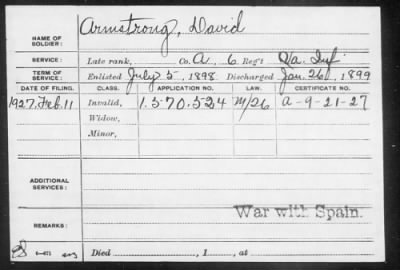 NAME OF SOLDIER: Armstrong, David
SERVICE: Late rank, Co. A, 6 Reg't Va. Inf.
TERM OF SERVICE: Enlisted July 5, 1898 Discharged Jan. 26, 1899
DATE OF FILING. CLASS. APPLICATION NO. LAW. CERTIFICATE NO.
1927, Feb. 11 Invalid, 1.570.524 A-9-21-27
Widow,
Minor,
ADDITIONAL SERVICES:
War with Spain.
REMARKS:
Died , 1 , at